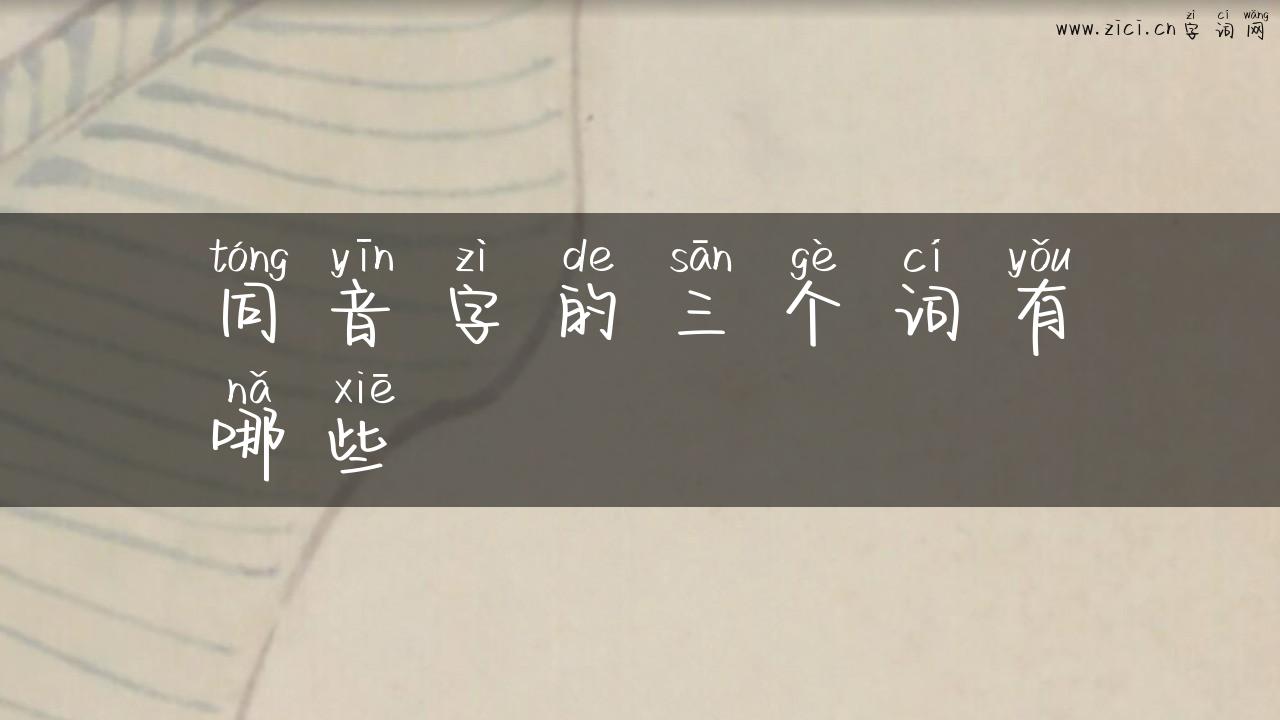 zì cí wǎng
www.zici.cn 字词网
tóng yīn zì de sān gè cí yǒu
同音字的三个词有
nǎ xiē
哪些